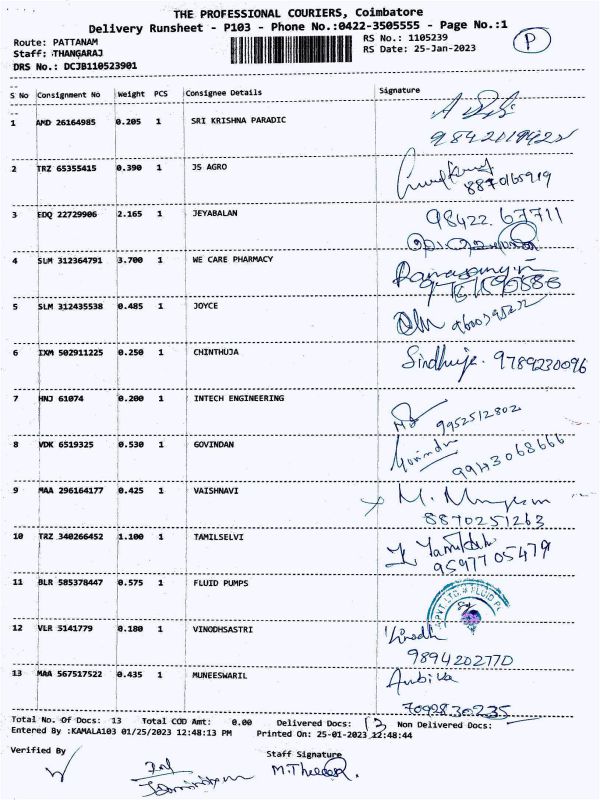 THE PROFESSIONAL COURIERS, Coimbatore
Delivery Runsheet - P103 - Phone No.:0422-3505555 - Page No.:1
Route: PATTANAM
RS No.: 1105239
P
Staff: THANGARAJ
RS Date: 25-Jan-2023
DRS No.: DCJB110523901
S No Consignment No Weight PCS Consignee Details Signature
1 AMD 26164985 0.205 1 SRI KRISHNA PARADIC
2 TRZ 65355415 0.390 1 J5 AGRO
8870165919
3 EDQ 22729906 2.165 1 JEYABALAN 98422 67711
4 SLM 312364791 3.700 1 WE CARE PHARMACY
5 SLM 312435538 0.485 1 JOYCE
6 IXM 502911225 0.250 1 CHINTHUJA Sindhuja. 9789230096
7 HNJ 61074 0.200 1 INTECH ENGINEERING
9952512802
8 VDK 6519325 0.530 1 GOVINDAN Govindn
9943068666
9 MAA 296164177 0.425 1 VAISHNAVI
8870251263
10 TRZ 340266452 1.100 1 TAMILSELVI
9597705479
11 BLR 585378447 0.575 1 FLUID PUMPS
PVT LTD. * FLUID P
12 VLR 3141779 0.180 1 VINODHSASTRI Vinodh
9894202770
13 MAA 567517522 0.435 1 MUNEESWARIL Ambika
7092830235
Total No. Of Docs: 13 Total COD Amt: 0.00 Delivered Docs: 13 Non Delivered Docs:
Entered By :KAMALA103 01/25/2023 12:48:13 PM Printed On: 25-01-2023 12:48:44
Verified By
Staff Signature